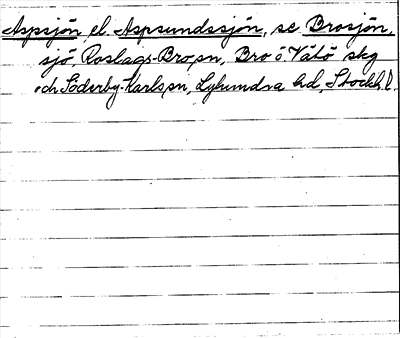 Aspsjön el. Aspsundssjön, se Brosjön,
sjö, Roslags-Bro sn, Bro o. Vätö skg
och Söderby-Karls sn, Lyhundra hd, Stockh.